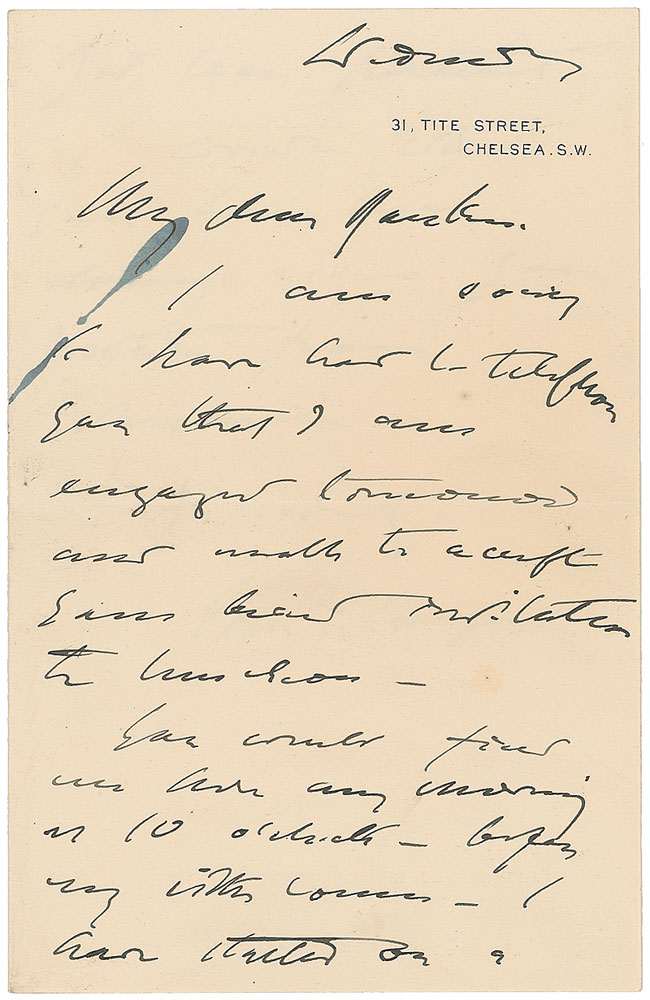 Wednesday
31, TITE STREET,
CHELSEA. S.W.
My dear
I am sorry
to have had to telephone
you that I am
engaged tomorrow
and unable to accept
your kind invitation
to luncheon —
You could find
me here any morning
at 10 o'clock — before
my sitter comes — I
have started on a